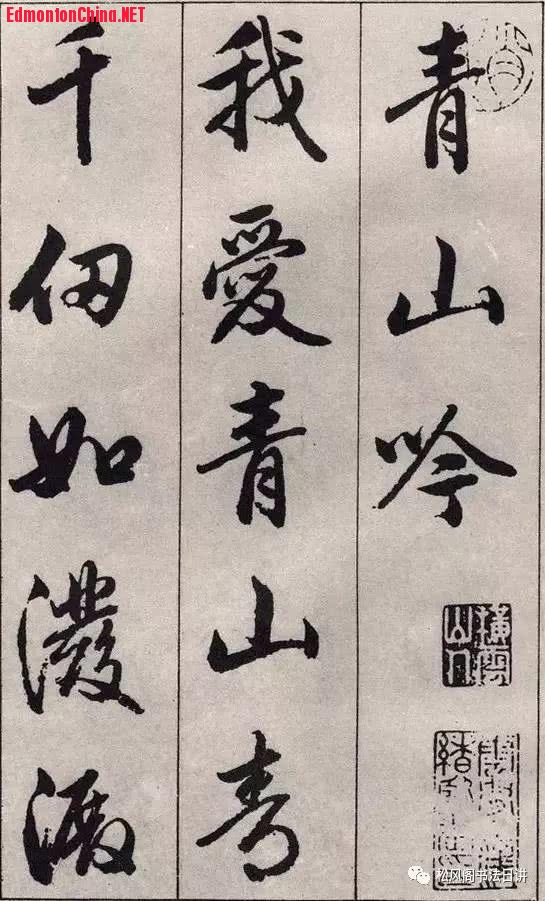 EdmontonChina.NET
青山吟
横雲山人
我愛青山青
千仞如潑
松风阁书法日讲